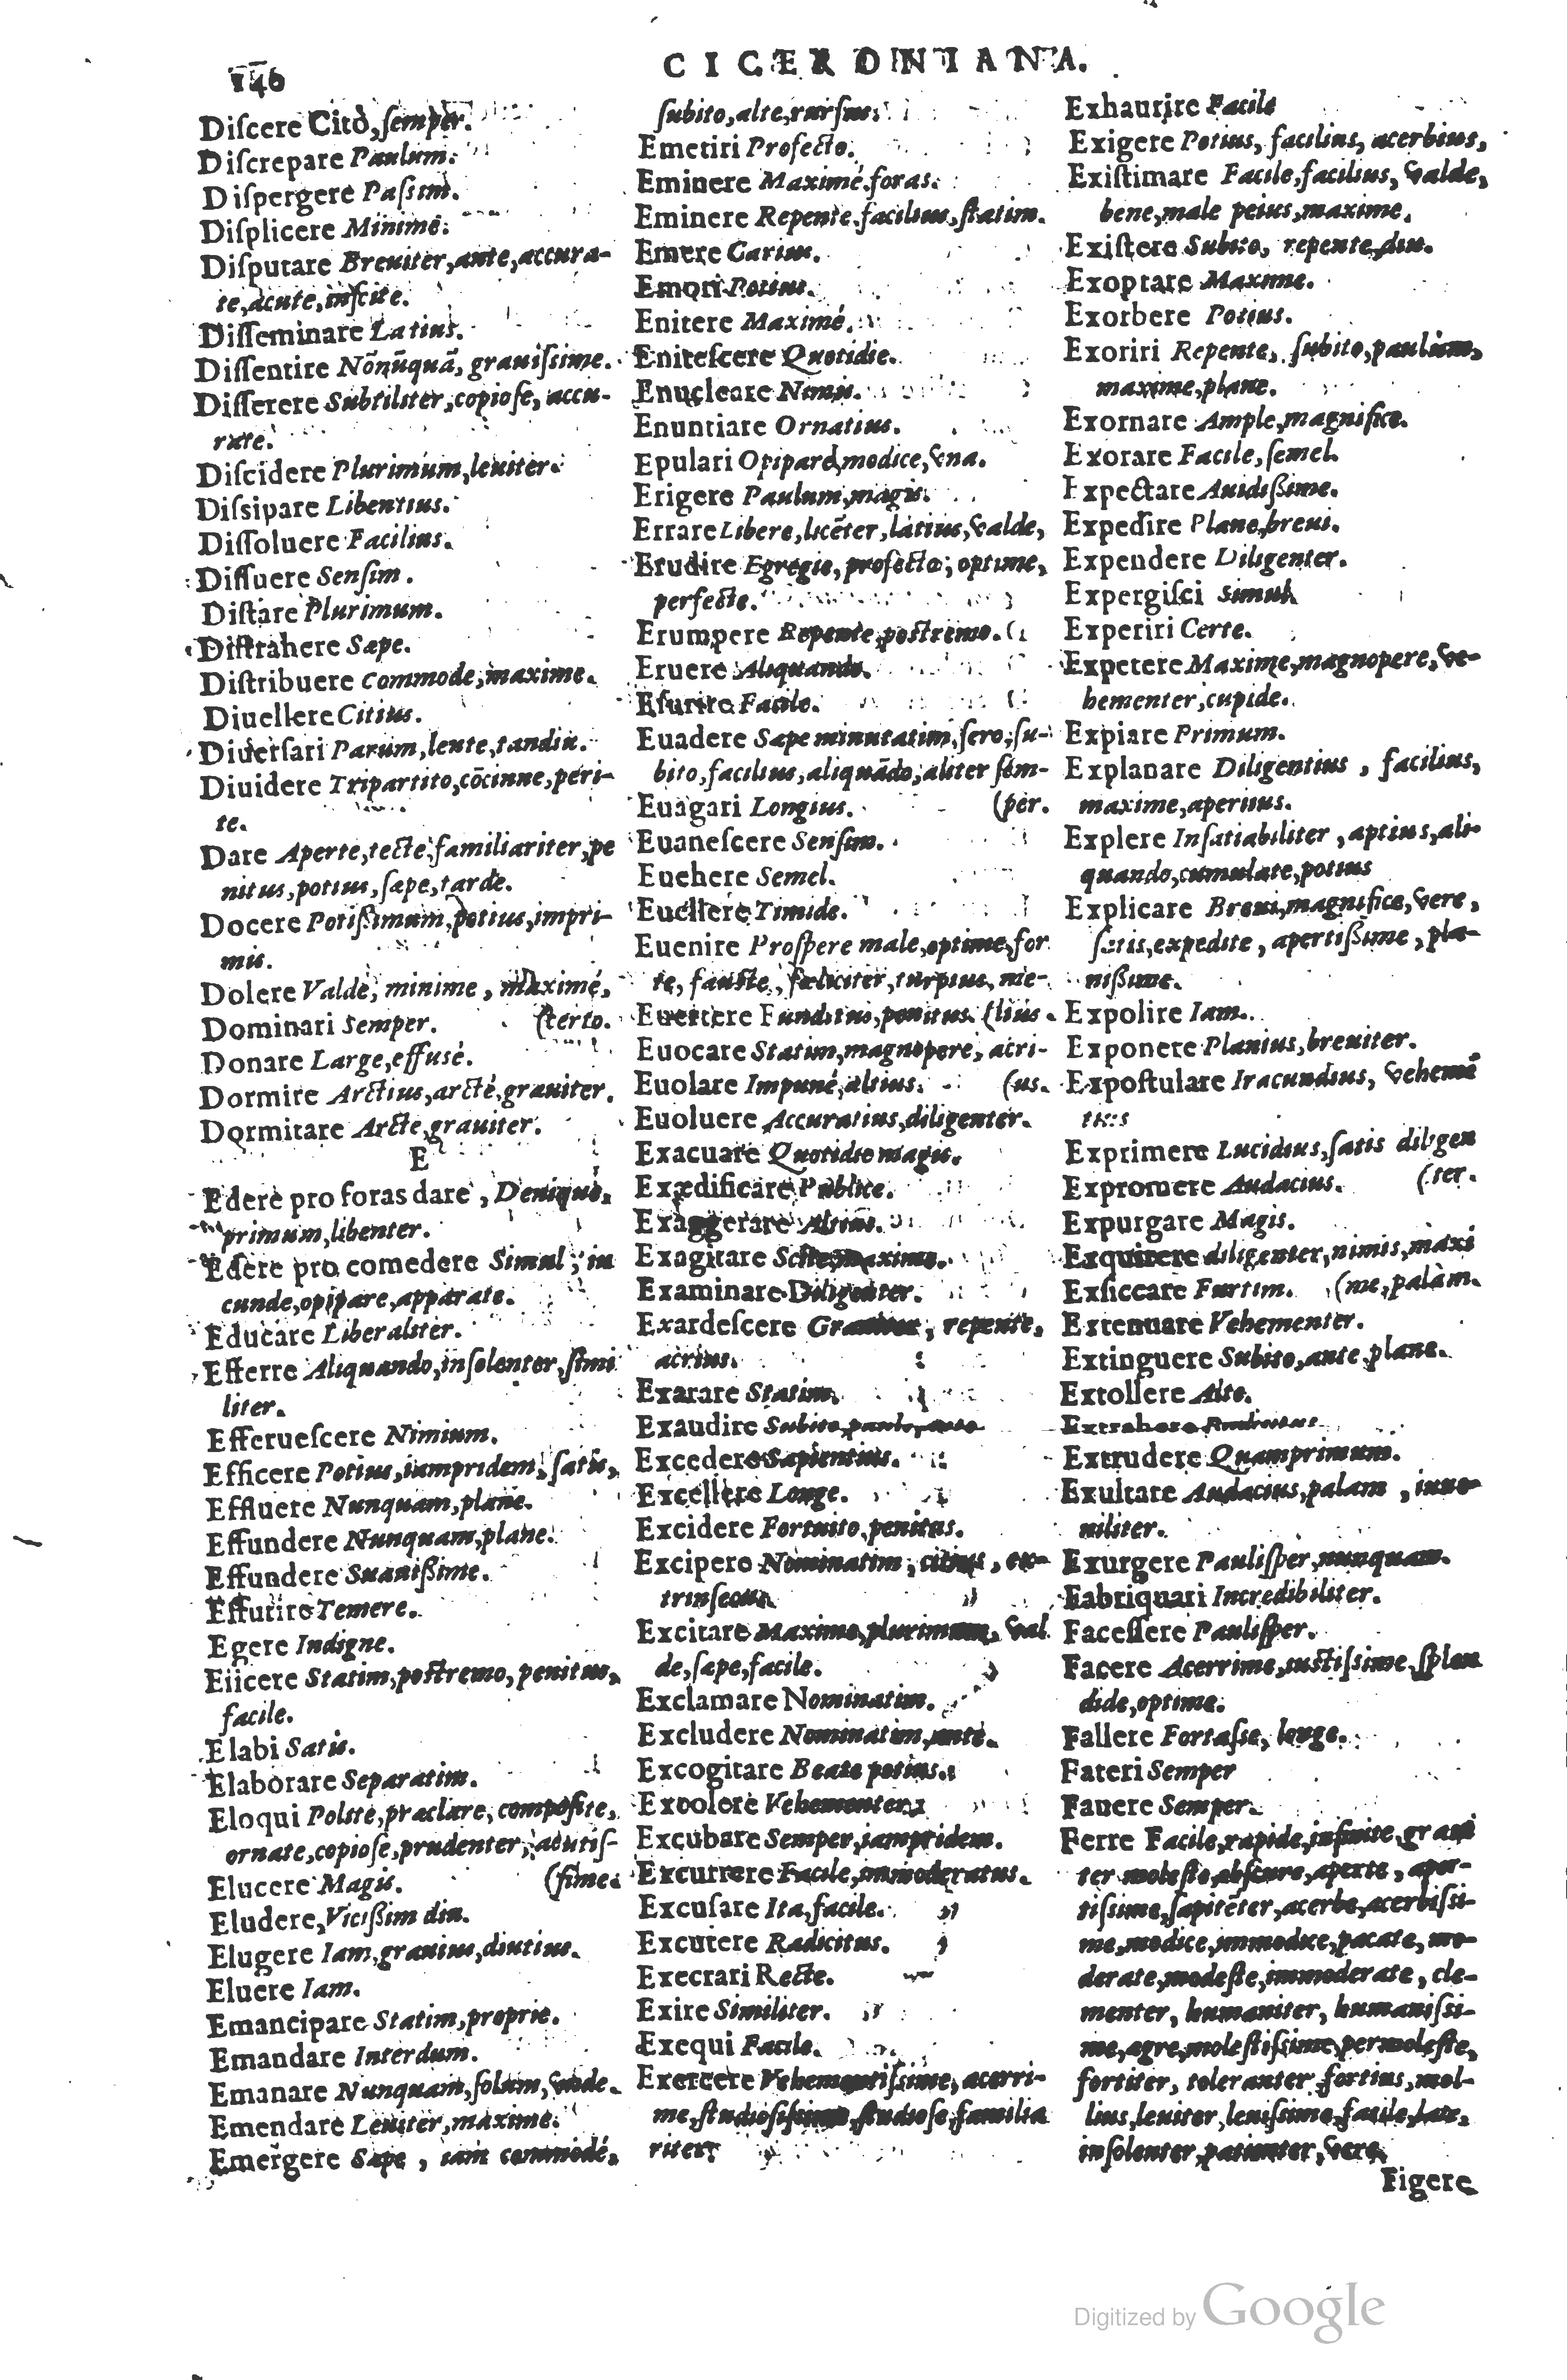 146
CICERONIANA.
Discere Citò, semper.
Discrepare Paulum.
Dispergere Passim.
Displicere Minimè.
Disputare Breuiter, ante, accura-
te, acute, inscite.
Disseminare Latius.
Dissentire Nõnũquã, grauissime.
Disserere Subtiliter, copiose, accu-
rate.
Discidere Plurimum, leuiter.
Dissipare Libentius.
Dissoluere Facilius.
Dissuere Sensim.
Distare Plurimum.
Distrahere Sæpe.
Distribuere commode, maxime.
Diuellere Citius.
Diuersari Parum, lente, tandiu.
Diuidere Tripartito, cõcinne, peri-
te.
Dare Aperte, tecte, familiariter, pe
nitus, potius, sæpe, tarde.
Docere Potißimum, potius, impri-
mis.
Dolere Valdè, minime, maximé,
Dominari Semper. (certo.
Donare Large, effusè.
Dormire Arctius, arctè, grauiter.
Dormitare Arcte, grauiter.
E
Edere pro foras dare, Denique,
primum, libenter.
Edere pro comedere Simul, iu
cunde, opipare, apparate.
Educare Liberaliter.
Efferre Aliquando, insolenter, simi
liter.
Efferuescere Nimium.
Efficere Potius, iampridem, satis,
Effluere Nunquam, plane.
Effundere Nunquam, plane.
Effundere Suauißime.
Effutire Temere.
Egere Indigne.
Eiicere Statim, postremo, penitus,
facile.
Elabi Satis.
Elaborare Separatim.
Eloqui Polite, præclare, composite,
ornate, copiose, prudenter, acutis-
Elucere Magis. (sime.
Eludere, Vicißim diu.
Elugere Iam, grauius, diutius.
Eluere Iam.
Emancipare Statim, proprie.
Emandare Interdum.
Emanare Nunquam, solum, vnde.
Emendare Leuiter, maxime.
Emergere Sæpe, iam commodé,
subito, alte, rursus.
Emetiri Profecto.
Eminere Maximé foras.
Eminere Repente, facilius, statim.
Emere Carius.
Emori Potius.
Enitere Maximé.
Enitescere Quotidie.
Enucleare Nimis.
Enuntiare Ornatius.
Epulari Opiparè, modice, vna.
Erigere Paulum, magis.
Errare Libere, licẽter, latius, valde,
Erudire Egregie, profecto, optime,
perfecte.
Erumpere Repente, postremo.
Eruere Aliquando.
Esurire Facile.
Euadere Sæpe minutatim, sero, su-
bito, facilius, aliquãdo, aliter sem-
Euagari Longius. (per.
Euanescere Sensim.
Euehere Semel.
Euellere Timide.
Euenire Prospere male, optime, for
te, fauste, fœliciter, turpius, me-
Euertere Funditus, penitus. (lius.
Euocare Statim, magnopere, acri-
Euolare Impuné, altius. (us.
Euoluere Accuratius, diligenter.
Exacuare Quotidie magis.
Exædificare Publice.
Exaggerare Altius.
Exagitare Scite, maxime.
Examinare Diligenter.
Exardescere Grauius, repente,
acrius.
Exarare Statim.
Exaudire Subito, paulo, ante
Excedere Sapientius.
Excellere Longe.
Excidere Fortuito, penitus.
Excipere Nominatim, citius, ex-
trinsecus.
Excitare Maxime, plurimum, val
de, sæpe, facile.
Exclamare Nominatim.
Excludere Nominatim, ante.
Excogitare Beate potius.
Excolere Vehementer.
Excubare Semper, iampridem.
Excurrere Facile, immoderatus.
Excusare Ita, facile.
Excutere Radicitus.
Execrari Recte.
Exire Similiter.
Exequi Facile.
Exercere Vehementissime, acerri-
me, studiosissime, studiose, familia
riter.
Exhaurire Facile
Exigere Potius, facilius, acerbius,
Existimare Facile, facilius, valde,
bene, male peius, maxime.
Existere Subito, repente, diu.
Exoptare Maxime.
Exorbere Potius.
Exoriri Repente, subito, paulum,
maxime, plane.
Exornare Ample, magnifice.
Exorare Facile, semel.
Expectare Auidißime.
Expedire Plane, breui.
Expendere Diligenter.
Expergisci simul.
Experiri Certe.
Expetere Maxime, magnopere, ve-
hementer, cupide.
Expiare Primum.
Explanare Diligentius, facilius,
maxime, apertius.
Explere Insatiabiliter, aptius, ali-
quando, cumulate, potius
Explicare Breui, magnifice, vere,
satis, expedite, apertißime, pla-
nißime.
Expolire Iam.
Exponere Planius, breuiter.
Expostulare Iracundius, vehemẽ
tius
Exprimere Lucidius, satis diligen
Expromere Audacius. (ter.
Expurgare Magis.
Exquirere diligenter, nimis, maxi
Exsiccare Furtim. (me, palàm.
Extenuare Vehementer.
Extinguere Subito, ante, plane.
Extollere Alte.
Extrahere
Extrudere Quamprimum.
Exultare Audacius, palam, iuue-
niliter.
Exurgere Paulisper, nunquam.
Fabriquari Incredibiliter.
Facessere Paulisper.
Facere Acerrime, iustissime, splen
dide, optime.
Fallere Fortasse, longe.
Fateri Semper
Fauere Semper.
Ferre Facile, rapide, infinite, graui
ter moleste, obscure, aperte, aper-
tissime, sapiẽter, acerbe, acerbissi-
me, modice, immodice, pacate, mo-
derate, modeste, immoderate, cle-
menter, humaniter, humanissi-
me, ægre, molestissime, permoleste,
fortiter, toleranter, fortius, mol-
lius, leuiter, leuissime, facile, late,
insolenter, patienter, vere.
Figere
Digitized by Google